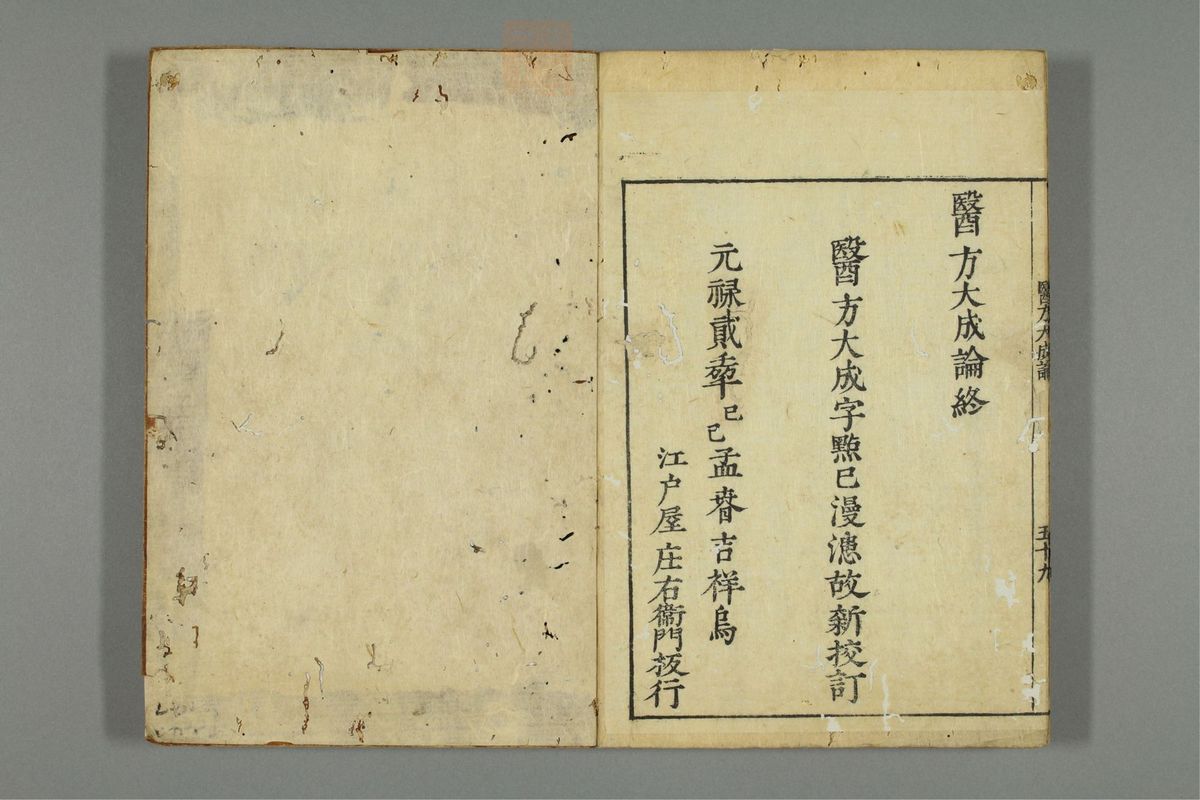 醫方大成論
五十九
醫方大成論終
醫方大成字㸃已漫漶故新挍訂
元禄貳季己巳孟春吉祥烏
江戸屋庄右衛門板行